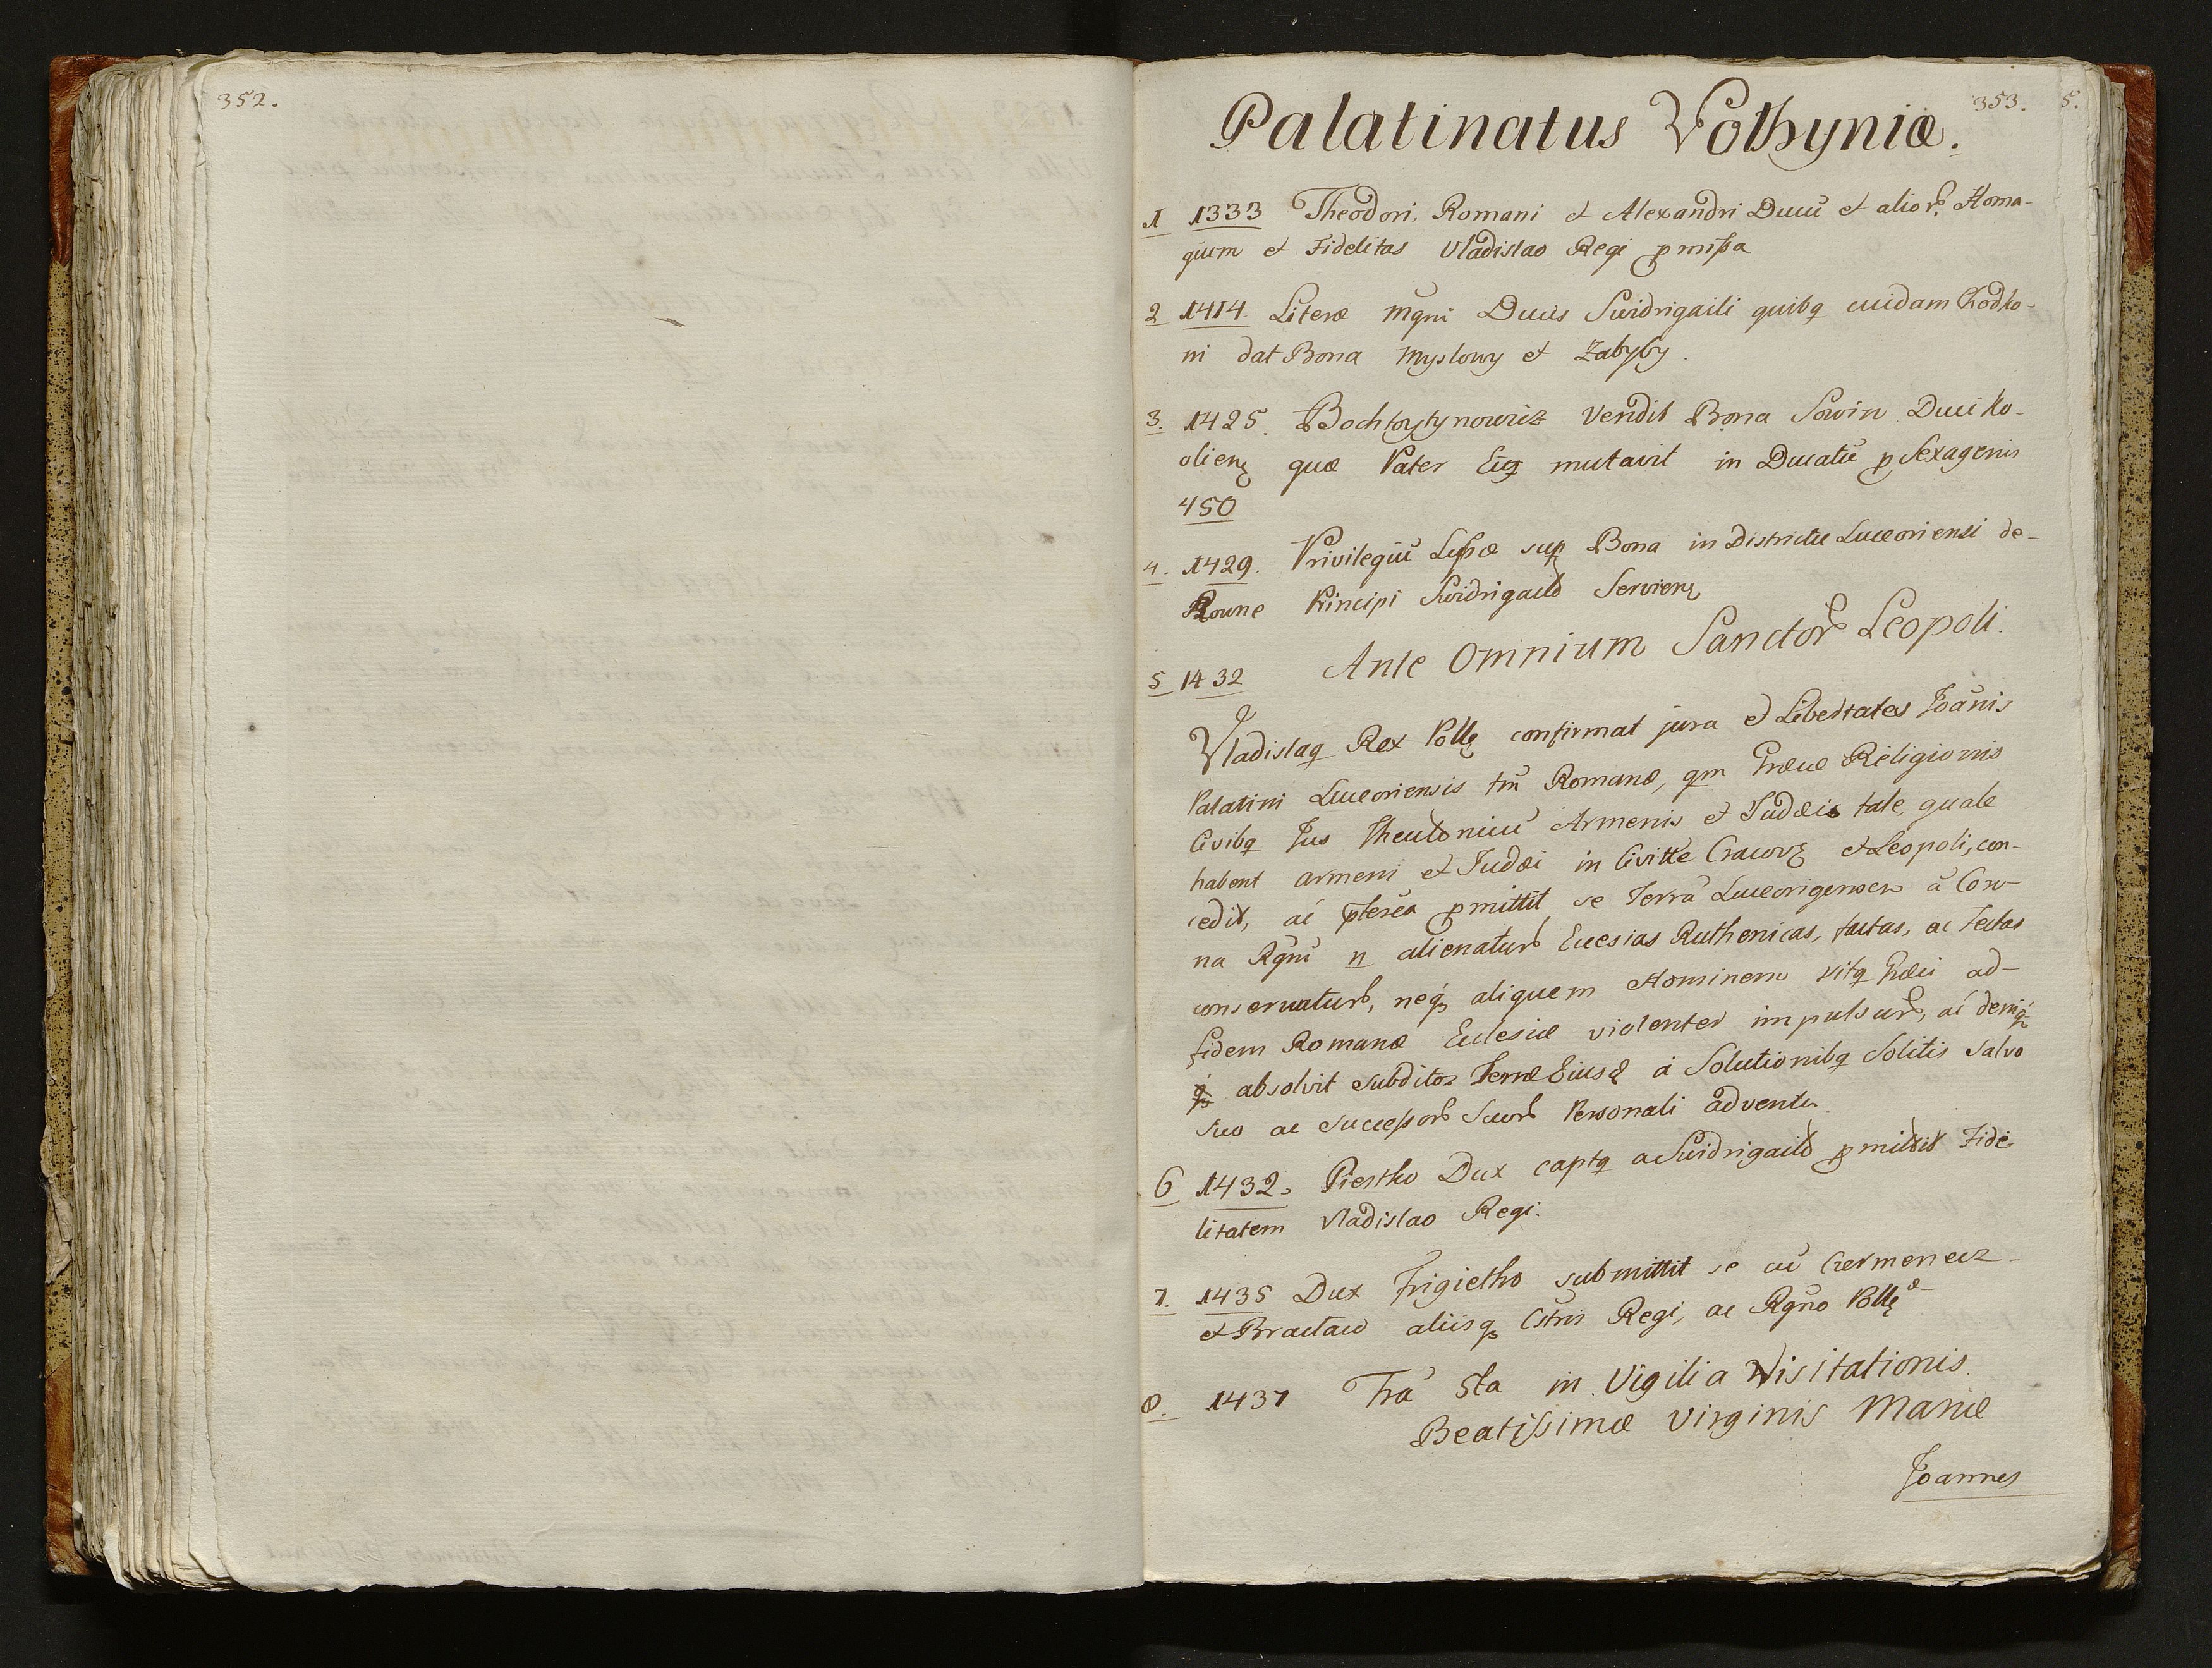 352.
353. 5.
Palatinatus Volhyniæ.
1 1333 Theodori, Romani et Alexandri Ducũ et alior. Homa-
gium et Fidelitas Vladislao Regi pmißa
2 1414. Literæ Mg̃ni Ducis Swidrigaili quibq cuidam Chodko-
ni dat Bona Myslowy et Zabyby.
3. 1425. Bochtoytynowicz vendit Bona Sowin Duci Ko-
olien̨ quæ Pater Eiq mutavit in Ducatũ p Sexagenis
450
4. 1429. Privilegiũ sup Bona in Districtu Luceoriensi de-
Rowne Principi Swidrigaild Servien̨
5 1432 Ante Omnium Sanctor Leopoli.
Vladislaq Rex Poll̨ę confirmat jura et Libertates Joãnis
Palatini Luceoriensis tm̃ Romanæ, qm Græcæ Religionis
Civibq Jus Theutonicũ Armenis et Judæis tale, quale
habent armeni et Judæi in Civitte Cracov̨ę et Leopoli, con-
cedit, ac pterea pmittit se Terrã Luceorigensem ã Coro-
na Rgni n̲ alienatur Eccesias Ruthenicas, factas, ac tectas
conservatur, neq, aliquem Hominem ritq Græci ad-
fidem Romanæ Ecclesiæ violenter impulsur, ac deniq
q absolvit subditos Terræ Eiusd a Solutionibq Solitis salvo
suo ac successor Suor Personali adventu.
6 1432. Piestko Dux captq a Swidrigaild pmittit Fide-
litatem Vladislao Regi.
7. 1435 Dux Frigietho submittit se cũ Crermenecz-
et Braclaw aliisq Cstris Regi, ac Rgno Poll̨ę
8. 1437 Fra Sta in Vigilia Visitationis
Beatissimæ Virginis Mariæ
Joannes